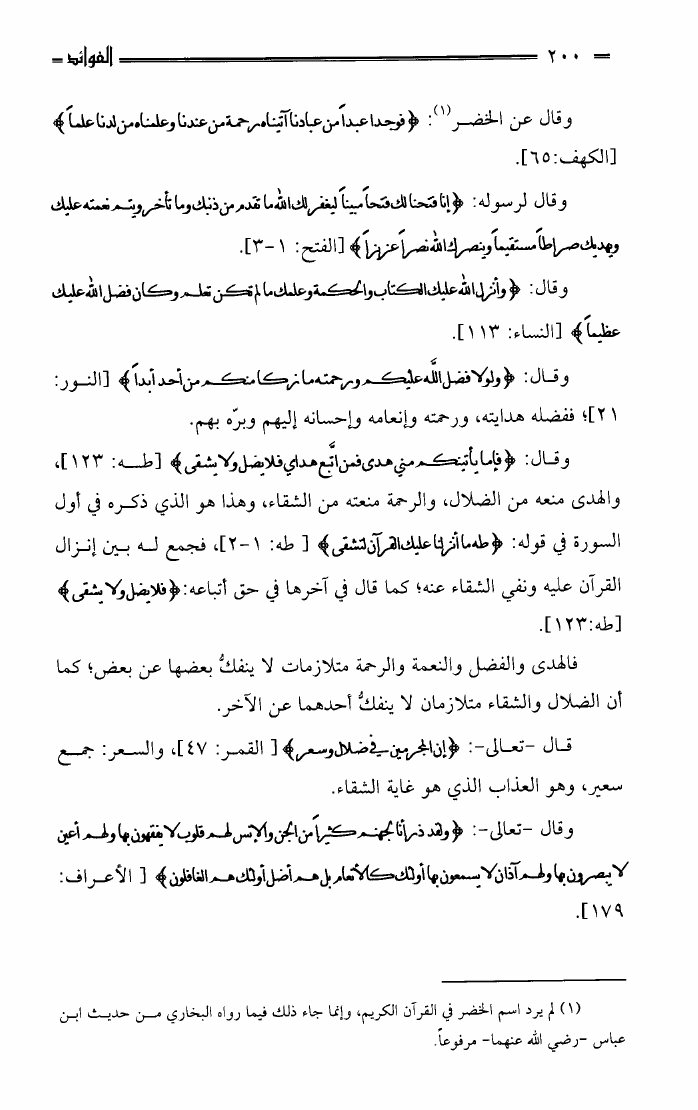 = ٢٠٠ الفوائد =
وقال عن الخضر(١): ﴿فوجدا عبداً من عبادنا آتيناه رحمة من عندنا وعلمناه من لدنا علماً﴾
[الكهف:٦٥].
وقال لرسوله: ﴿إنا فتحنا لك فتحاً مبيناً ليغفر لك الله ما تقدم من ذنبك وما تأخر ويتم نعمته عليك
ويهديك صراطاً مستقيماً وينصرك الله نصراً عزيزاً﴾ [الفتح: ١-٣].
وقال: ﴿وأنزل الله عليك الكتاب والحكمة وعلمك ما لم تكن تعلم وكان فضل الله عليك
عظيماً﴾ [النساء: ١١٣].
وقال: ﴿ولولا فضل اللَّه عليكم ورحمته ما زكا منكم من أحد أبداً﴾ [النور:
٢١]؛ ففضله هدايته، ورحمته وإنعامه وإحسانه إليهم وبرّه بهم.
وقال: ﴿فإما يأتينكم مني هدى فمن اتَّبع هداي فلا يضل ولا يشقى﴾ [طه: ١٢٣]،
والهدى منعه من الضلال، والرحمة منعته من الشقاء، وهذا هو الذي ذكره في أول
السورة في قوله: ﴿طه ما أنزلنا عليك القرآن لتشقى﴾ [ طه: ١-٢]، فجمع له بين إنزال
القرآن عليه ونفي الشقاء عنه؛ كما قال في آخرها في حق أتباعه:﴿فلا يضل ولا يشقى﴾
[طه:١٢٣].
فالهدى والفضل والنعمة والرحمة متلازمات لا ينفكُّ بعضها عن بعض؛ كما
أن الضلال والشقاء متلازمان لا ينفكُّ أحدهما عن الآخر.
قال -تعالى-: ﴿إن المجرمين في ضلال وسعر﴾ [ القمر: ٤٧]، والسعر: جمع
سعير، وهو العذاب الذي هو غاية الشقاء.
وقال -تعالى-: ﴿ولقد ذرأنا لجهنم كثيراً من الجن والإنس لهم قلوب لا يفقهون بها ولهم أعين
لا يبصرون بها ولهم آذان لا يسمعون بها أولئك كالأنعام بل هم أضل أولئك هم الغافلون﴾ [ الأعراف:
١٧٩].
(١) لم يرد اسم الخضر في القرآن الكريم، وإنما جاء ذلك فيما رواه البخاري من حديث ابن
عباس -رضي الله عنهما- مرفوعاً.